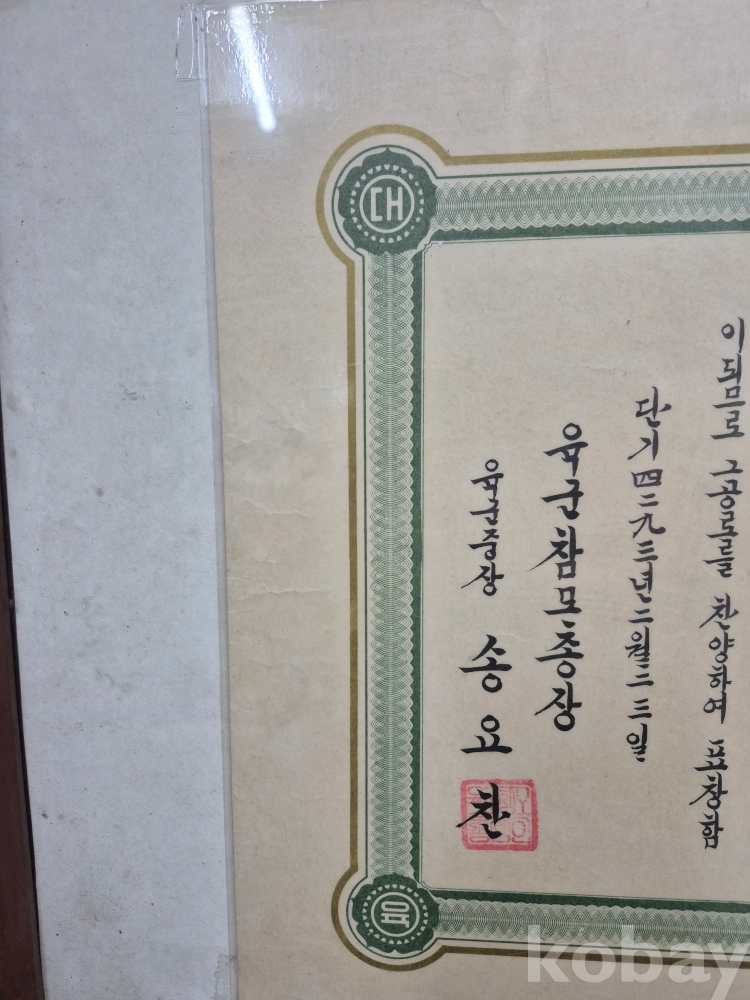 이됨므로 그공로를 찬양하여 표창함
단기四二九三년二월二三일
육군참모총장
육군중장 송요찬
대
육
kobay